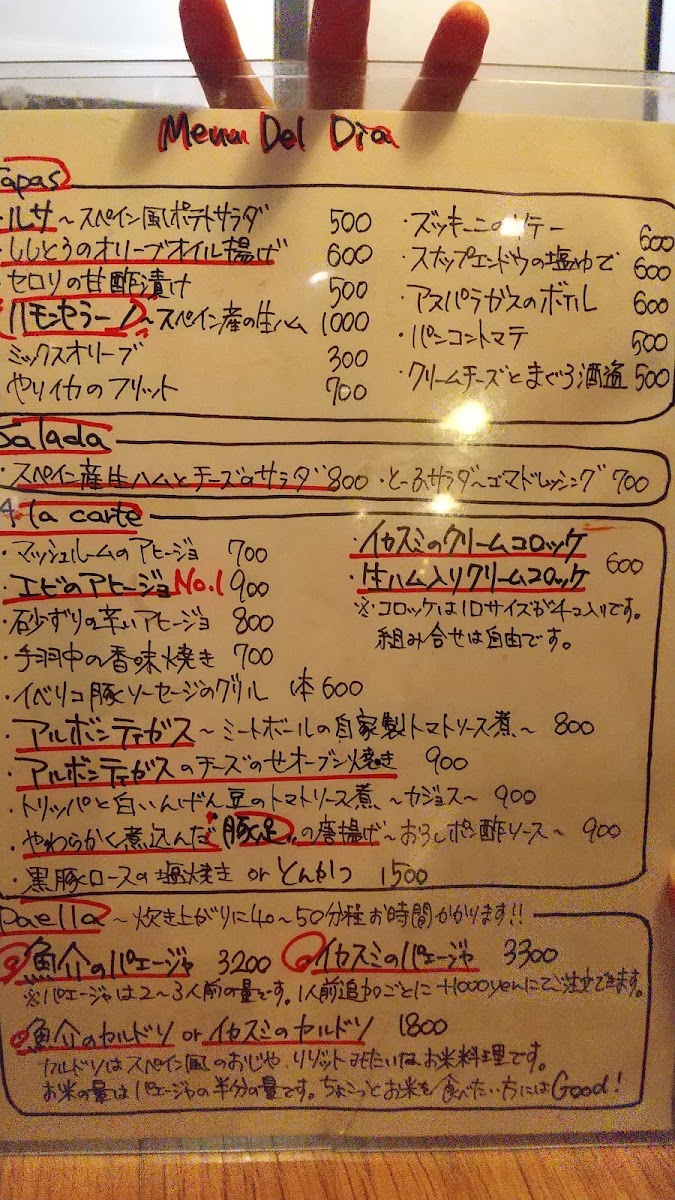 Menu Del Dia
Tapas
ルサ～スペイン風ポテトサラダ 500
ししとうのオリーブオイル揚げ 600
セロリの甘酢漬け 500
ハモンセラーノ～スペイン産の生ハム 1000
ミックスオリーブ 300
やりイカのフリット 700
・ズッキーニのソテー 600
・スナップエンドウの塩ゆで 600
・アスパラガスのボイル 600
・パンコントマテ 500
・クリームチーズとまぐろ酒盗 500
Salada
・スペイン産生ハムとチーズのサラダ 800 ・とーふサラダ～ゴマドレッシング 700
A la carte
・マッシュルームのアヒージョ 700
・エビのアヒージョ No.1 900
・砂ずりの辛いアヒージョ 800
・手羽中の香味焼き 700
・イベリコ豚ソーセージのグリル 1本600
・イカスミのクリームコロッケ
・生ハム入りクリームコロッケ 600
※コロッケは1Dサイズが4コ入りです。
組み合せは自由です。
・アルボンディガス～ミートボールの自家製トマトソース煮～ 800
・アルボンディガスのチーズのせオーブン焼き 900
・トリッパと白いんげん豆のトマトソース煮～カジョス～ 900
・やわらかく煮込んだ"豚足"の唐揚げ～おろしポン酢ソース～ 900
・黒豚ロースの塩焼き or とんかつ 1500
Paella～炊き上がりに40～50分程お時間かかります!!
魚介のパエージャ 3200 イカスミのパエージャ 3300
※パエージャは2～3人前の量です。1人前追加ごとに+1000yenにてご注文できます。
魚介のカルドソ or イカスミのカルドソ 1800
カルドソはスペイン風のおじや、リゾットみたいなお米料理です。
お米の量はパエージャの半分の量です。ちょこっとお米を食べたい方にはGood!